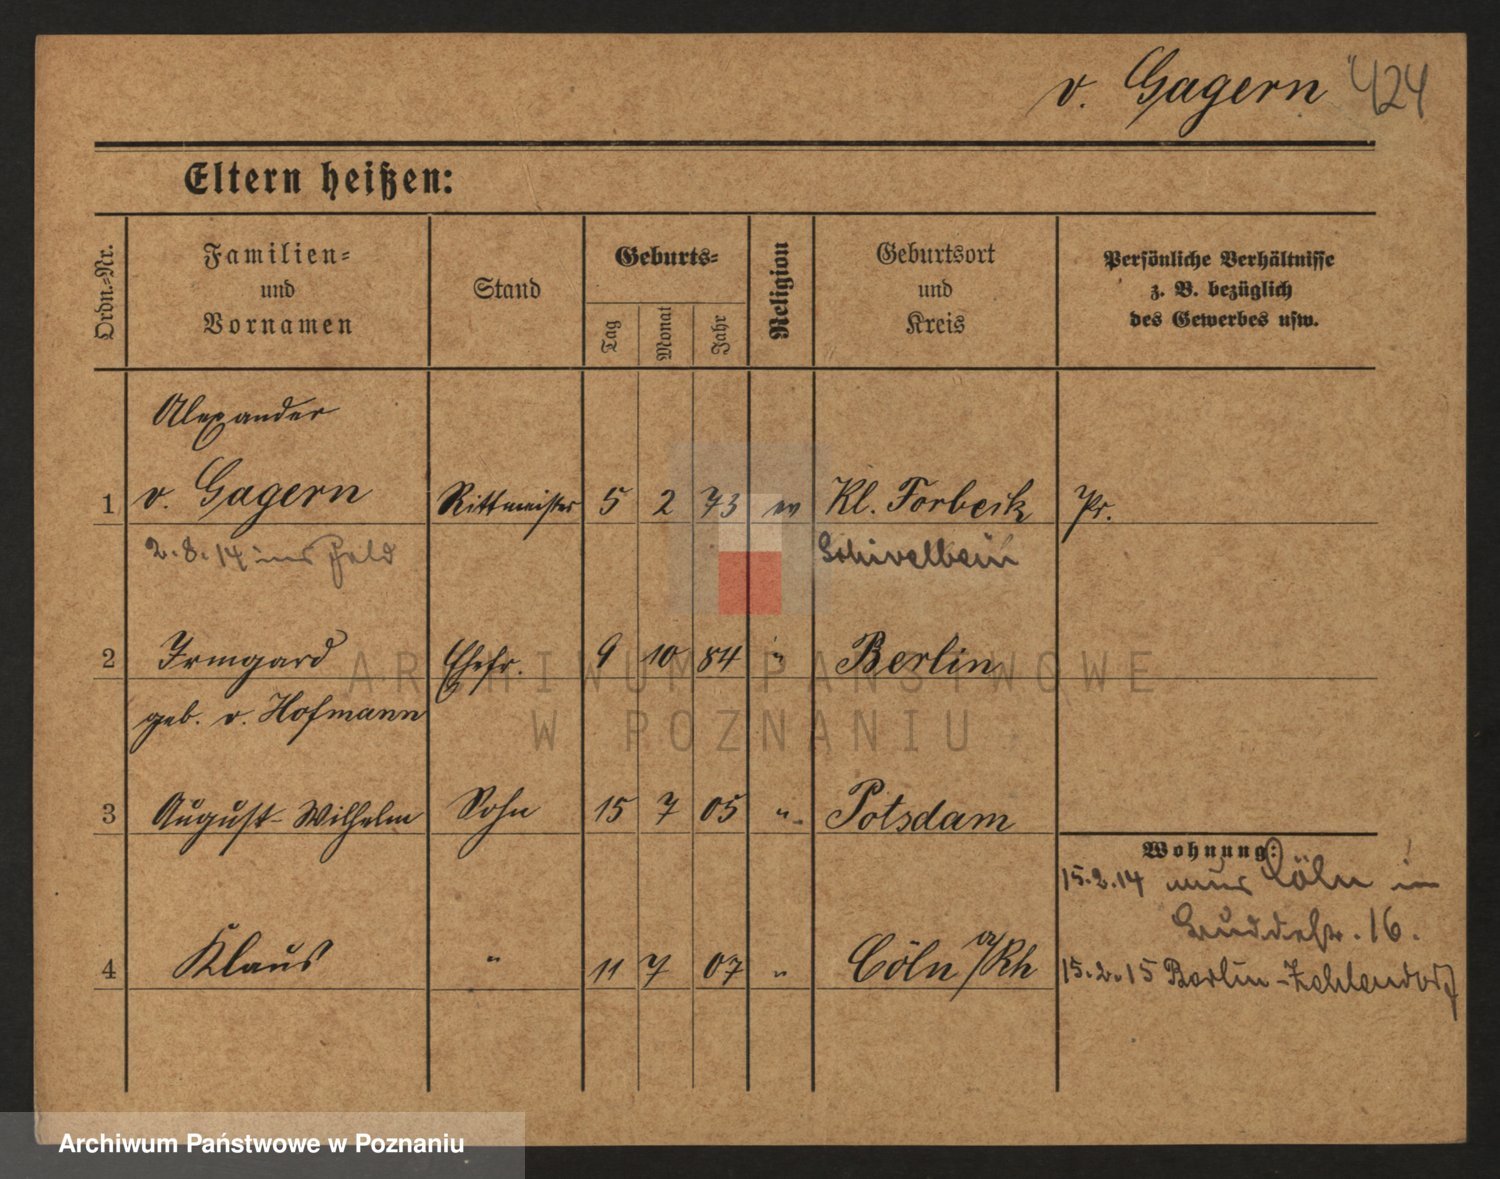 v. Gagern 424
Eltern heißen:
Ordn.-Nr.
Familien-
und
Vornamen
Stand
Geburts-
Tag
Monat
Jahr
Religion
Geburtsort
und
Kreis
Persönliche Verhältnisse
z. B. bezüglich
des Gewerbes usw.
Alexander
1 v. Gagern Rittmeister 5 2 73 ev Kl. Forbeck Pr.
2.8.14 ins Feld Schivelbein
2 Irmgard Ehefr. 9 10 84 " Berlin
geb. v. Hofmann
3 August-Wilhelm Sohn 15 7 05 " Potsdam
Wohnung:
15.2.14 Cöln
16.
4 Klaus " 11 7 07 " Cöln a/Rh
15.2.15 Berlin-Zehlendorf
ARCHIWUM PAŃSTWOWE
W POZNANIU
Archiwum Państwowe w Poznaniu